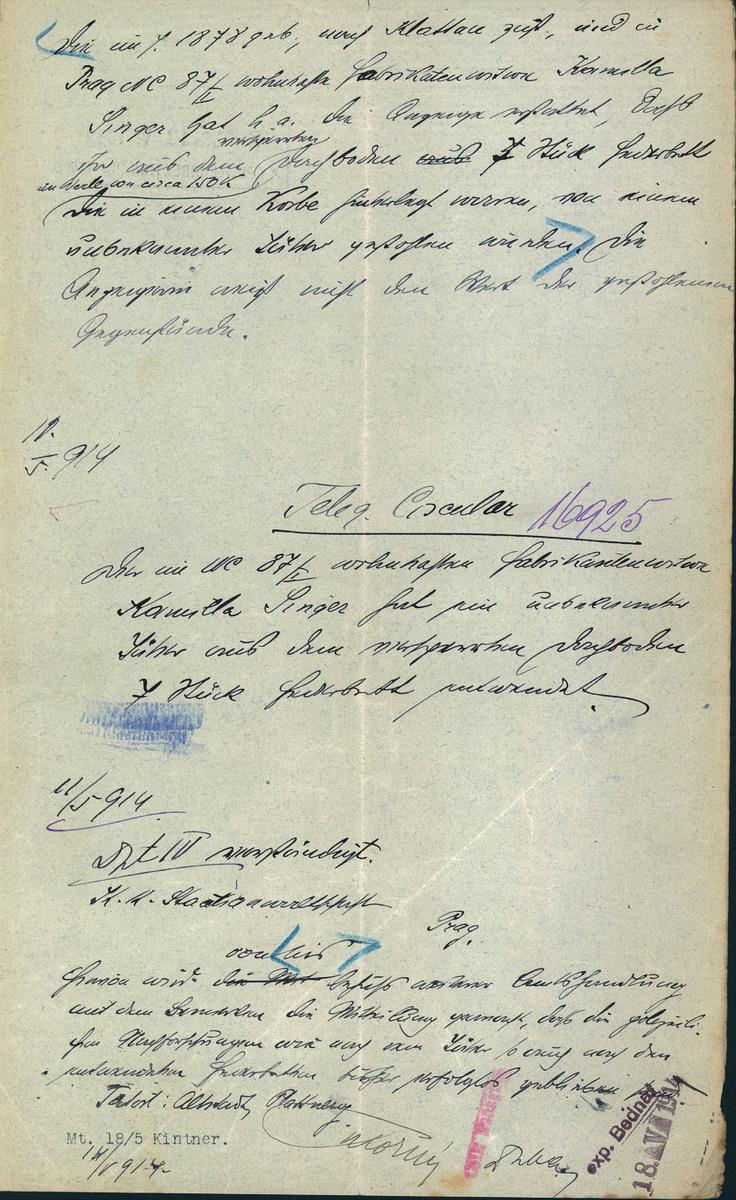 Die im J. 1878 geb., nach Klattau zust., und in
Prag NC 87/I wohnhafte Fabrikantenwitwe Kamilla
Singer hat h. a. die Anzeige erstattet, daß
ihr aus dem versperrten Dachboden aus 7 Stück Federbett
im Werte von circa 150 K
die in einem Korbe hinterlegt waren, von einem
unbekannten Täter gestohlen wurden. Die
Anzeigerin weiß nicht den Wert der gestohlenen
Gegenstände.
10.
5. 914
Teleg. Circular 16925
Der in NC 87/I wohnhaften Fabrikantenwitwe
Kamilla Singer hat ein unbekannter
Täter aus dem versperrten Dachboden
7 Stück Federbett entwendet.
11/5 914
Dpt IV verständigt.
K. K. Staatsanwaltschaft
Prag.
hievon wird behufs weiterer Amtshandlung
mit dem Bemerken die Mitteilung gemacht, daß die polizeili-
chen Nachforschungen wie nach dem Täter so auch nach den
entwendeten Federbetten bisher erfolglos geblieben
Tatort: Altstadt, Plattnerg
Mt. 18/5 Kintner.
14/5 914
exp. Bednář
18. V. 1914